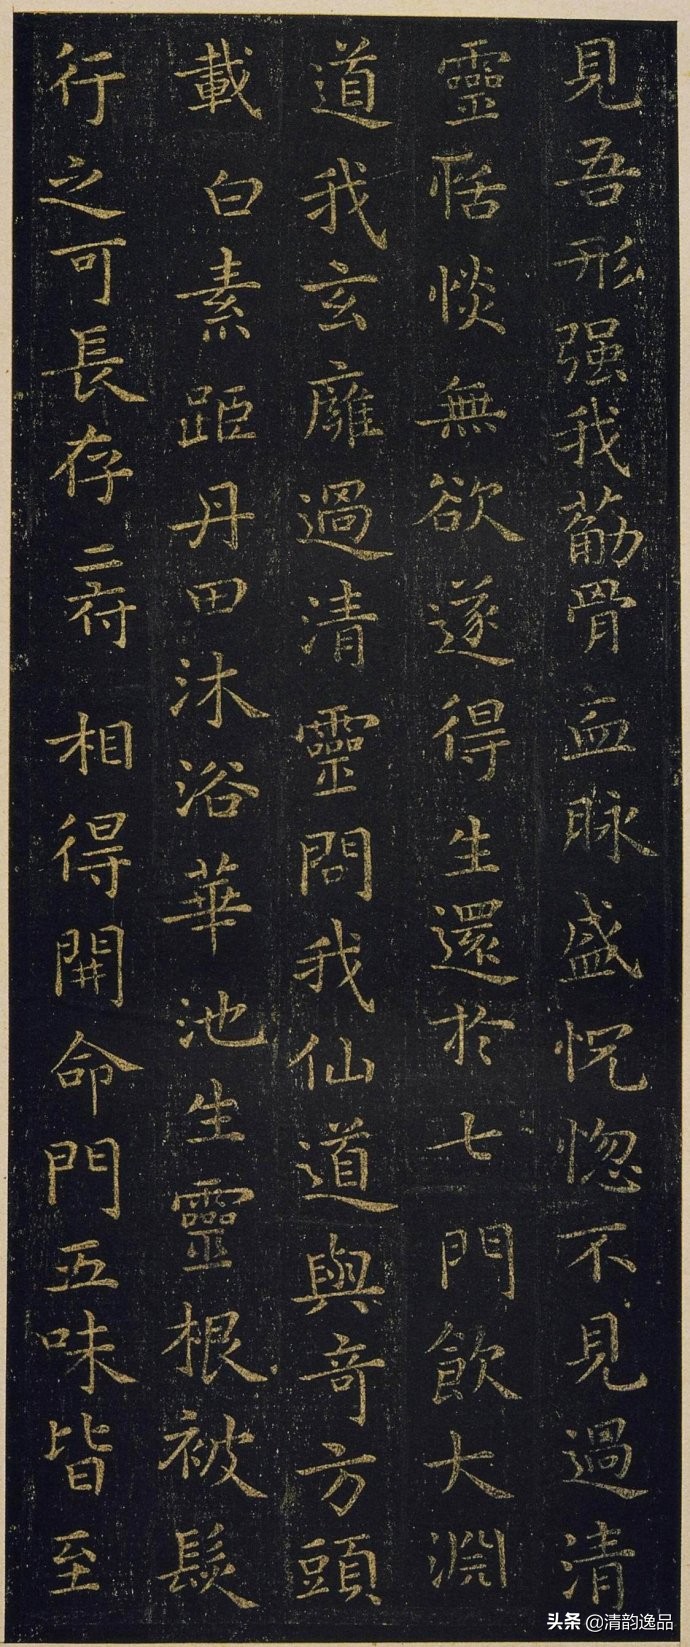 見吾形强我葋骨血脉盛怳惚不見過清
靈恬惔無欲遂得生還於七門飲大淵
道我玄廱過清靈問我仙道與奇方頭
載白素距丹田沐浴華池生靈根被髮
行之可長存二府相得開命門五味皆至
头条 @清韵逸品